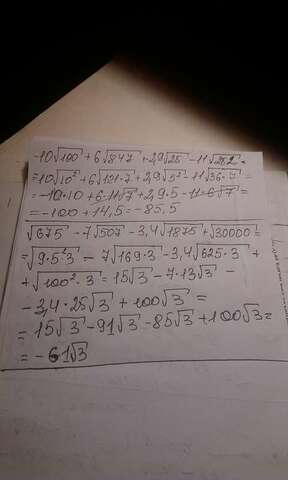 -10√100 + 6√847 + 2,9√25 - 11√252 =
= 10√10² + 6√121·7 + 2,9√5² - 11√36·7 =
= -10·10 + 6·11√7 + 2,9·5 - 11·6√7 =
= -100 + 14,5 = -85,5
√675 - 7√507 - 3,4√1875 + √30000 =
= √9·5²·3 - 7√169·3 - 3,4√625·3 +
+ √100²·3 = 15√3 - 7·13√3 -
- 3,4·25√3 + 100√3 =
= 15√3 - 91√3 - 85√3 + 100√3 =
= -61√3